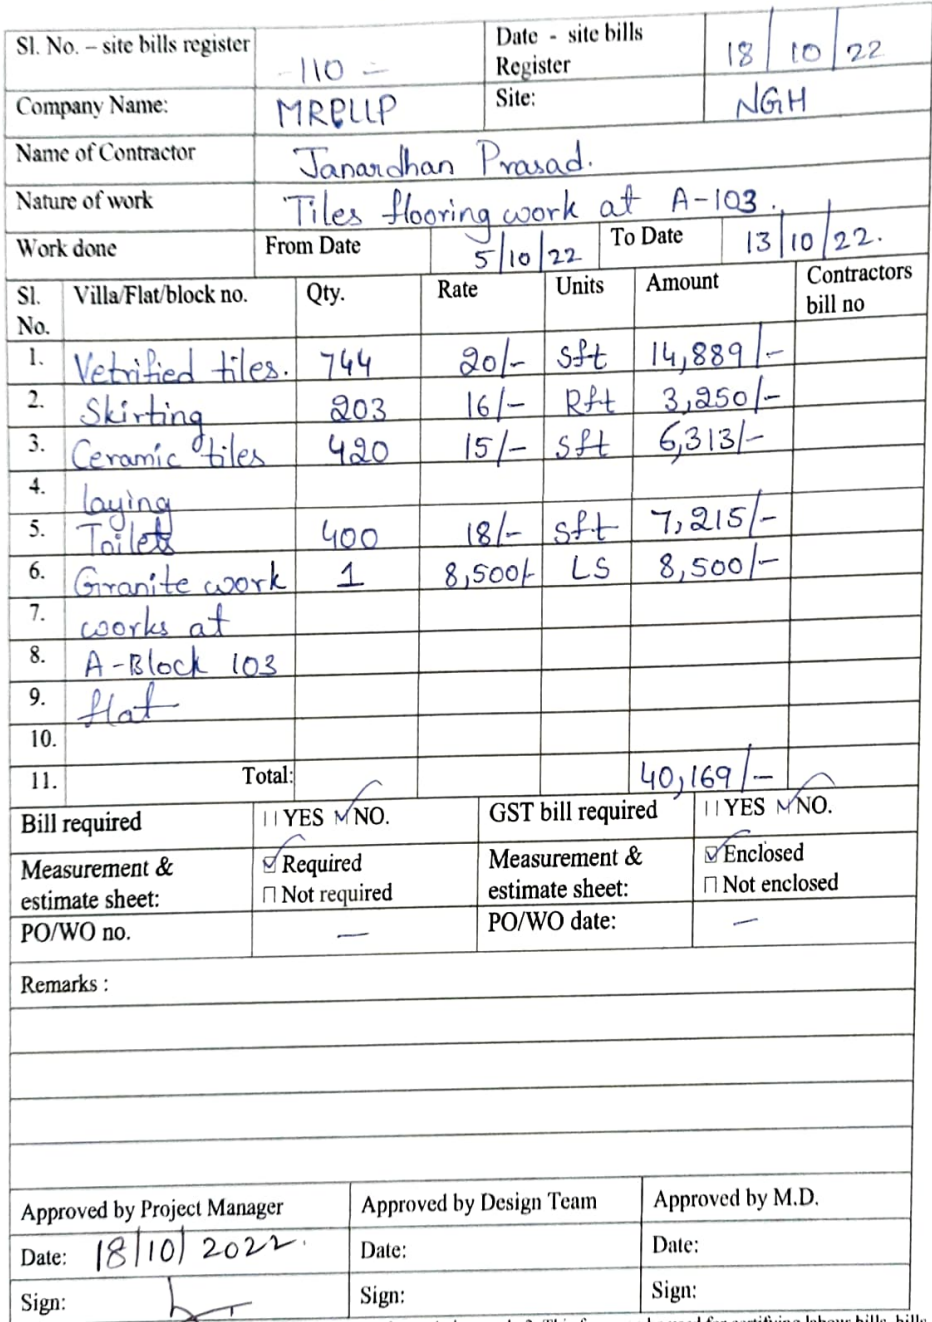 Sl. No. – site bills register -110 – Date - site bills Register 18/10/22
Company Name: MRPLLP Site: NGH
Name of Contractor Janardhan Prasad.
Nature of work Tiles flooring work at A-103.
Work done From Date 5/10/22 To Date 13/10/22.
Sl. No. Villa/Flat/block no. Qty. Rate Units Amount Contractors bill no
1. Vetrified tiles. 744 20/- Sft 14,889/-
2. Skirting 203 16/- Rft 3,250/-
3. Ceramic tiles 420 15/- Sft 6,313/-
4. laying
5. Toilets 400 18/- Sft 7,215/-
6. Granite work 1 8,500/- LS 8,500/-
7. works at
8. A-Block 103
9. flat
10.
11. Total: 40,169/-
Bill required YES NO. GST bill required YES NO.
Measurement & estimate sheet: Required Not required Measurement & estimate sheet: Enclosed Not enclosed
PO/WO no. — PO/WO date: —
Remarks :
Approved by Project Manager Approved by Design Team Approved by M.D.
Date: 18/10/2022. Date: Date:
Sign: Sign: Sign: